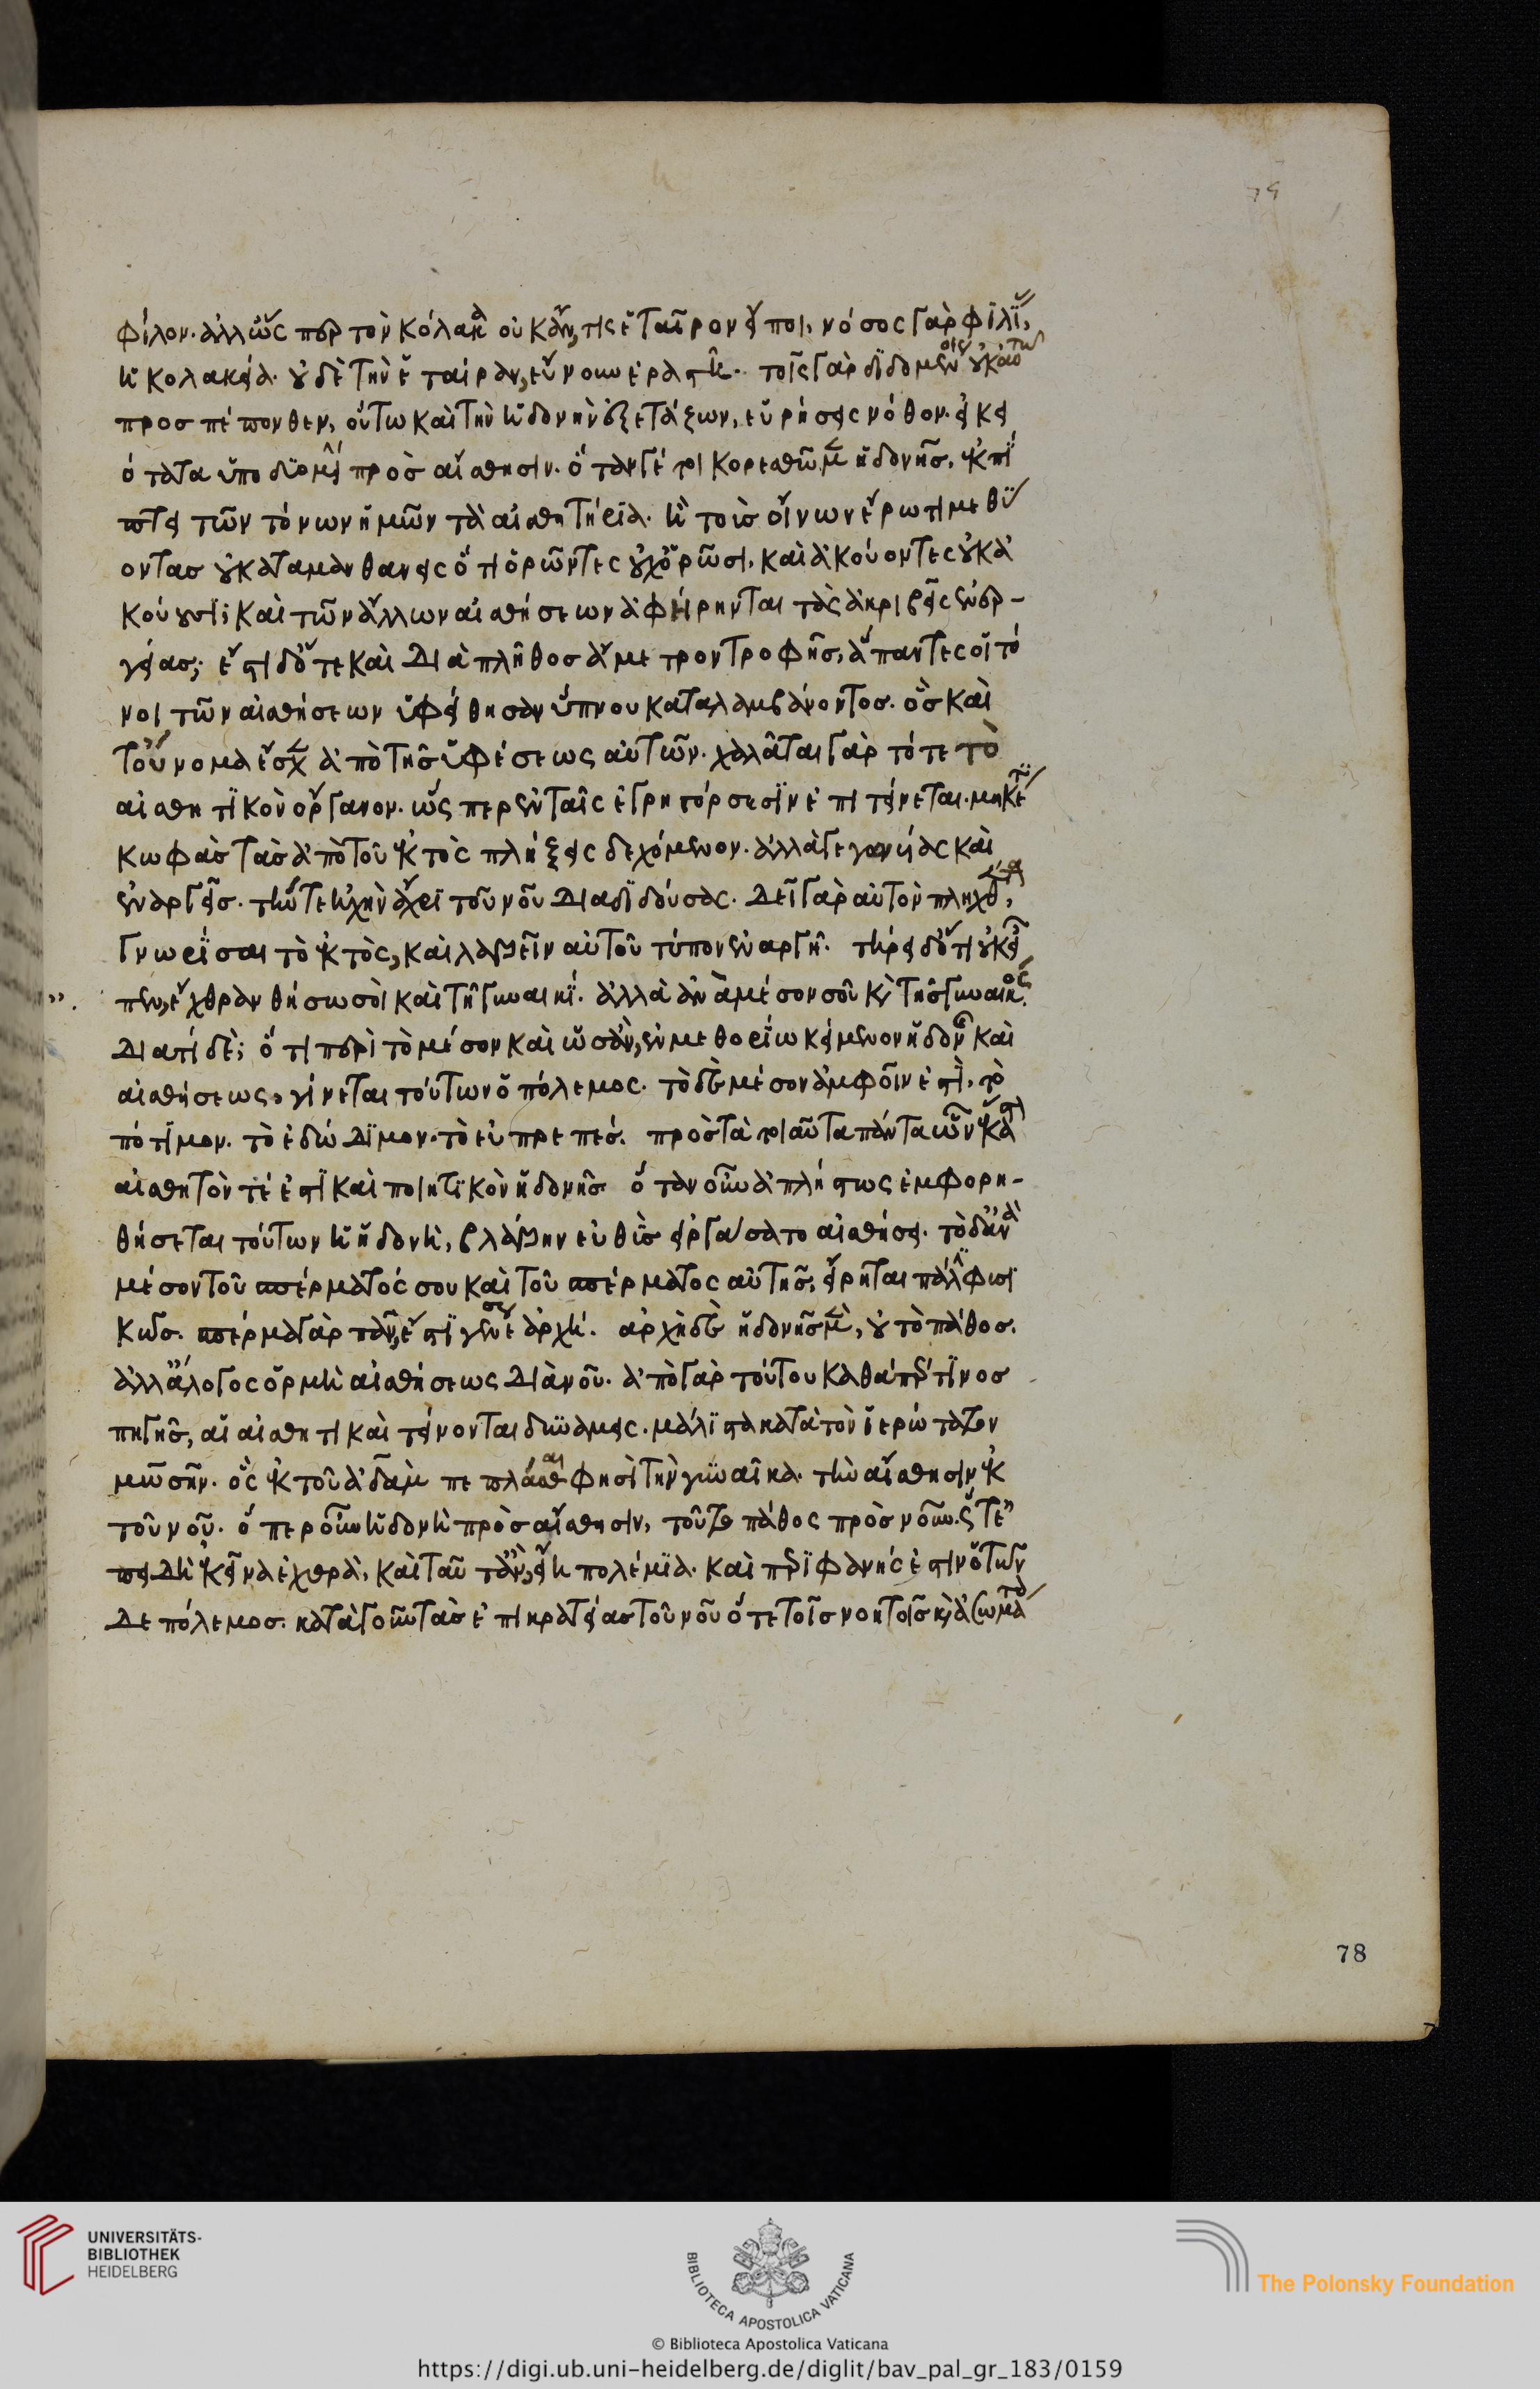 79
φίλον. ἀλλ' ὥσπερ τὸν κόλακα οὐκ ἄν τις ἑταῖρον εἴποι, νόσος γὰρ φιλίας
ἡ κολακεία. οὐδὲ τὴν ἑταίραν, εὔνουν ἐραστῇ. τοῖς γὰρ διδομένοις οὐκ αὐτῷ
προσπέπονθεν, οὕτω καὶ τὴν ἡδονὴν ἐξετάζων, εὑρήσεις νόθον.
ὅταν γέ τοι κορεσθῶμεν ἡδονῆς, ἐκπί
πτει τῶν τόνων ἡμῶν τὰ αἰσθητήρια. ἢ τοὺς οἴνῳ ἢ ἔρωτι μεθύ
οντας οὐ καταμανθάνεις ὅτι ὁρῶντες οὐχ ὁρῶσι, καὶ ἀκούοντες οὐκ ἀ
κούουσι; καὶ τῶν ἄλλων αἰσθήσεων ἀφῄρηνται τὰς ἀκριβεῖς ἐνερ-
γείας; ἔστι δ' ὅτε καὶ διὰ πλῆθος ἄμετρον τροφῆς, ἅπαντες οἱ τό
νοι τῶν αἰσθήσεων ὑφείθησαν ὕπνου καταλαμβάνοντος. ὃς καὶ
τοὔνομα ἔσχεν ἀπὸ τῆς ὑφέσεως αὐτῶν. χαλᾶται γὰρ τότε τὸ
αἰσθητικὸν ὄργανον. ὥσπερ ἐν ταῖς ἐγρηγόρσεσιν ἐπιτείνεται. μηκέτι
κωφὰς τὰς ἀπὸ τοῦ ἐκτὸς πλήξεις δεχόμενον. ἀλλὰ γεγωνείας καὶ
ἐναργεῖς. τήν τε ἠχὴν ἄχρι τοῦ νοῦ διαδιδούσας. δεῖ γὰρ αὐτὸν πληχθέντα
γνωρίσαι τὸ ἐκτὸς, καὶ λαβεῖν αὐτοῦ τύπον ἐναργῆ. τήρει δ' ὅτι οὐκ εἶ
πεν, ἔχθραν θήσω σοὶ καὶ τῇ γυναικί. ἀλλὰ ἀνὰ μέσον σοῦ καὶ τῆς γυναικός.
διατί δέ; ὅτι περὶ τὸ μέσον καὶ ὡσὰν, ἐν μεθορίῳ κείμενον ἡδονῆς καὶ
αἰσθήσεως, γίνεται τούτων ὁ πόλεμος. τὸ δὲ μέσον ἀμφοῖν ἐστὶ, τὸ
πότιμον. τὸ ἐδώδιμον. τὸ εὐπρεπές. πρὸς τὰ τοιαῦτα πάντα ὧν ἕκαστον
αἰσθητόν τέ ἐστι καὶ ποιητικὸν ἡδονῆς ὅταν οὖν ἀπλήστως ἐμφορη-
θήσεται τούτων ἡ ἡδονή, βλάβην εὐθὺς εἰργάσατο αἰσθήσει. τὸ δ' ἀνὰ
μέσον τοῦ σπέρματός σου καὶ τοῦ σπέρματος αὐτῆς, εἴρηται πάλιν φυσι
κῶς. σπέρμα γὰρ πᾶν, ἔστι γενέσεως ἀρχή. ἀρχὴ δὲ ἡδονῆς μὲν, οὐ τὸ πάθος.
ἀλλ' ἄλογος ὁρμὴ αἰσθήσεως διὰ νοῦ. ἀπὸ γὰρ τούτου καθάπερ τινὸς
πηγῆς, αἱ αἰσθητικαὶ τείνονται δυνάμεις. μάλιστα κατὰ τὸν ἱερώτατον
μωσῆν. ὃς ἐκ τοῦ ἀδὰμ πεπλάσθαι φησὶ τὴν γυναῖκα. τὴν αἴσθησιν ἐκ
τοῦ νοῦ. ὅπερ οὖν ἡδονὴ πρὸς αἴσθησιν, τοῦτο πάθος πρὸς νοῦν.
καὶ ταῦτ' ἂν, εἴη πολέμια. καὶ περιφανής ἐστιν ὁ τούτων
δε πόλεμος. κατὰ γοῦν τὰς ἐπικρατείας τοῦ νοῦ ὅτε τοῖς νοητοῖς καὶ ἀσωμάτοις
78
UNIVERSITÄTS-
BIBLIOTHEK
HEIDELBERG
BIBLIOTECA APOSTOLICA VATICANA
The Polonsky Foundation
© Biblioteca Apostolica Vaticana
https://digi.ub.uni-heidelberg.de/diglit/bav_pal_gr_183/0159